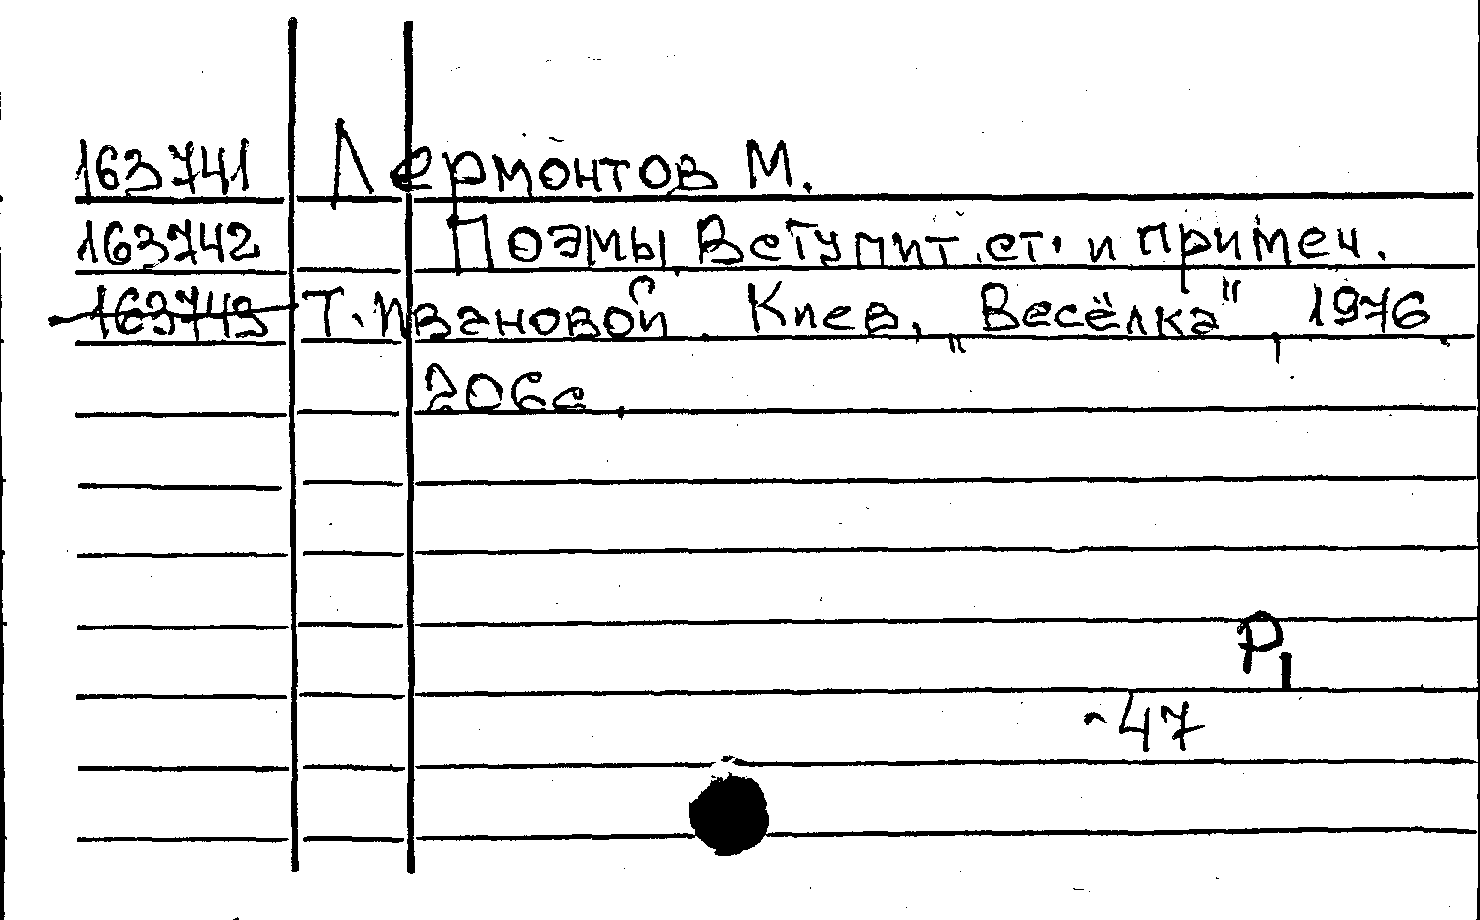 163741 Лермонтов М.
163742 Поэмы. Вступит. ст. и примеч.
163743 Т. Ивановой. Киев, „Весёлка", 1976.
206с.
Р1
-47